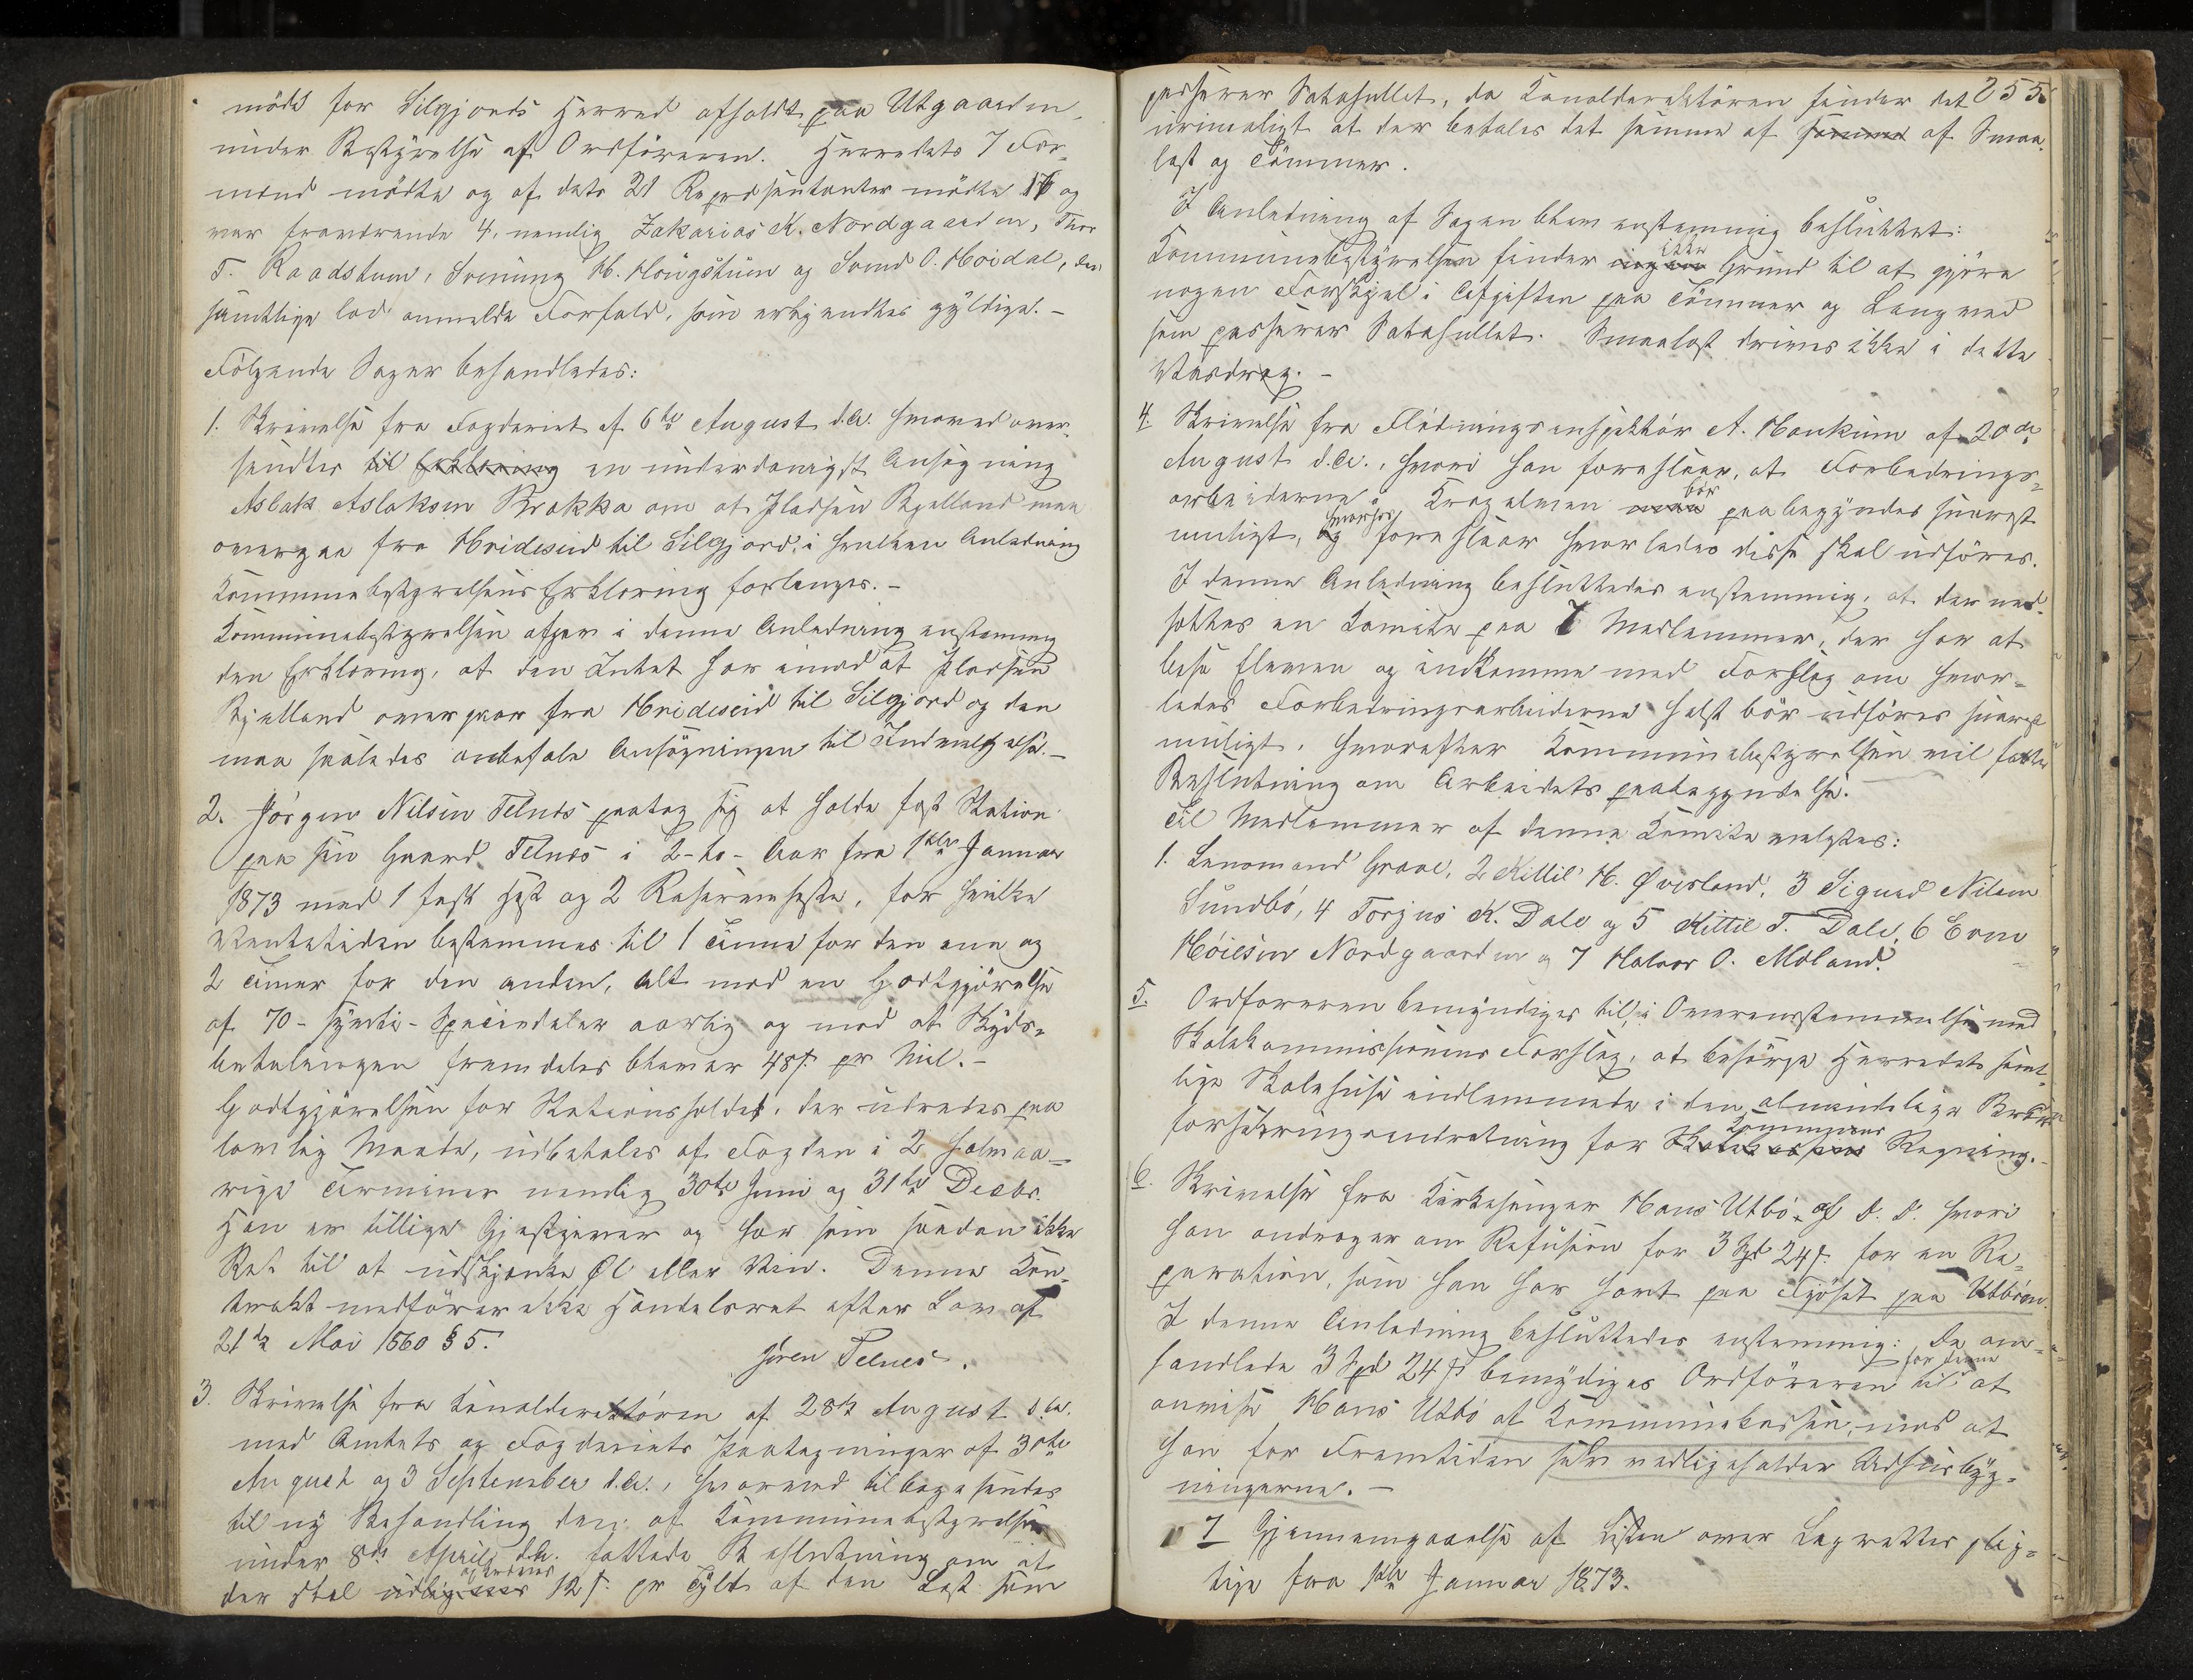 möde for Silgjords Herred afholdt paa Utgaarden
under Bestyrelse af Ordföreren. Herredets 7 For-
mænd mödte og af dets 21 Repræsentanter mödte 17 og
var fraværende 4, nemlig Zakarias K. Nordgaarden, Thor
T. Raadstum, Sveinung H. Haugstum og Svend O. Höidal, der
samtlige lod anmelde Forfald, som erkjendtes gyldige. -
Følgende Sager behandledes:
1. Skrivelse fra Fogderiet af 6te August d.A. hvorved over-
sendtes til Erklæring en underdanigst Ansøgning
Aslak Aslaksen Brokka om at Pladsen Kjelland maa
overgaa fra Hvideseid til Silgjord, i hvilken Anledning
Kommunebestyrelsens Erklæring forlanges. -
Kommunebestyrelsen afgav i denne Anledning enstemmig
den Erklæring, at den Intet har imod at Pladsen
Kjelland overgaar fra Hvideseid til Silgjord og den
maa saaledes anbefale Ansögningen til Indvilgelse. -
2. Jörgen Nilsen Telnes paatog sig at holde fast Station
paa sin Gaard Telnes i 2-to-Aar fra 1ste Januar
1873 med 1 fast Hest og 2 Reserveheste, for hvilke
Ventetiden bestemmes til 1 Time for den ene og
2 Timer for den anden, alt mod en Godtgjörelse
af 70-sytti-Speciedaler aarlig og mod at Skyds-
betalingen fremdeles bliver 48 s. pr Mil. -
Godtgjörelsen for Stationsholdet, der udredes paa
lovlig Maade, udbetales af Fogden i 2 halvaa-
rige Terminer nemlig 30te Juni og 31te Decbr.
Han er tillige Gjestgiver og har som saadan ikke
Ret til at udskjænke Øl eller Vin. Denne Kon-
trakt medförer ikke Handelsret efter Lov af
21de Mai 1860 § 5.
Jören Telnes.
3. Skrivelse fra Kanaldirektören af 28de August d.A.
med Amtets og Fogderiets Paategninger af 30te
August og 3 September d.A., hvorved tilbagesendes
til ny Behandling den af Kommunebestyrelsen
under 8de April d.A. fattede Beslutning om at
afgives
der skal udlignes 12 s. pr Tylt af den Last som
255
passerer Satahullet, da Kanaldirektören finder det
urimeligt at der betales det samme af samme af Smaa-
last og Tömmer.
I Anledning af Sagen blev enstemmig besluttet:
ikke
Kommunebestyrelsen finder ingen Grund til at gjöre
nogen Forskjel i Afgiften paa Tömmer og Langved
som passerer Satahullet. Smaalast drives ikke i dette
Vasdrag. -
4. Skrivelse fra Flödningsinspektör A. Haukum af 20de
August d.A., hvori han foreslaar, at Forbedrings-
bör
arbeiderne i Kragelven maa paabegyndes snarest
hvorhos
muligt, og foreslaar hvorledes disse skal udföres.
I denne Anledning besluttedes enstemmig, at der ned-
sættes en Komite paa 7 Medlemmer, der har at
bese Elven og indkomme med Forslag om hvor-
ledes Forbedringsarbeiderne helst bör udföres snarest
muligt, hvorefter Kommunebestyrelsen vil fatte
Beslutning om Arbeidets paabegyndelse.
Til Medlemmer af denne Komite valgtes:
1. Lensmand Grave, 2 Kittil H. Øverland, 3 Sigurd Nilsen
Sundbö, 4 Torjus K. Dale og 5 Kittil T. Dale, 6 Even
Höilsen Nordgaarden og 7 Halvor O. Moland.
5. Ordföreren bemyndiges til, i Overensstemmelse med
Skolekommissionens Forslag, at besörge Herredets samt-
lige Skolehuse indlemmede i den almindelige Brand-
Kommunens
forsikringsindretning for Skolekassens Regning. -
6. Skrivelse fra Kirkesanger Hans Utbö af D.D. hvori
han andrager om Refusion for 3 Spd 24 s. for en Re-
paration, som han har havt paa Fjöset paa Utböen.
I denne Anledning besluttedes enstemmig: De om-
for denne
handlede 3 Spd 24 s. bemydiges Ordföreren til at
anvise Hans Utbö af Kommunekassen, mod at
han for Fremtiden selv vedligeholder Udhusbyg-
ningerne. -
7 Gjennemgaaelse af Listen over Lagrettespligt-
tige fra 1ste Januar 1873.